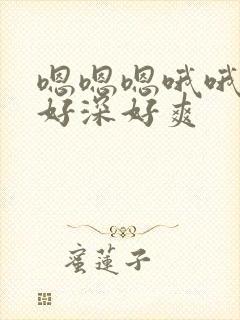 嗯嗯嗯哦哦
好深好爽
蜜莲子